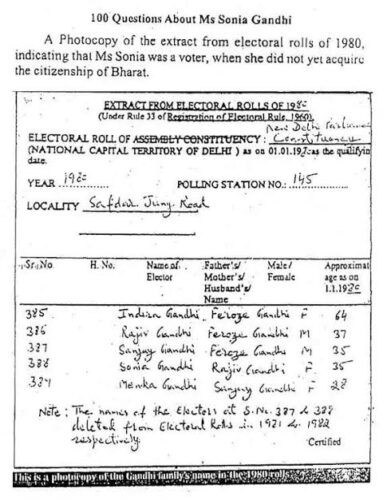 100 Questions About Ms Sonia Gandhi
A Photocopy of the extract from electoral rolls of 1980,
indicating that Ms Sonia was a voter, when she did not yet acquire
the citizenship of Bharat.
EXTRACT FROM ELECTORAL ROLLS OF 1980
(Under Rule 33 of Registration of Electoral Rule, 1960)
New Delhi
ELECTORAL ROLL OF ASSEMBLY CONSTITUENCY : Constituency
(NATIONAL CAPITAL TERRITORY OF DELHI ) as on 01.01.19 as the qualifyin
date.
YEAR 1980 POLLING STATION NO. 145
LOCALITY Safdar Jung Road
Sr.No H. No. Name of Father's/ Male/ Approximat
Elector Mother's/ Female age as on
Husband's/ 1.1.1980
Name
385 Indira Gandhi Feroze Gandhi F 64
386 Rajiv Gandhi Feroze Gandhi M 37
387 Sanjay Gandhi Feroze Gandhi M 35
388 Sonia Gandhi Rajiv Gandhi F 35
389 Menka Gandhi Sanjay Gandhi F 28
Note : The names of the Electors at S.No. 387 & 388
deleted from Electoral Rolls in 1981 & 1982
respectively.
Certified
This is a photocopy of the Gandhi family's name in the 1980 rolls